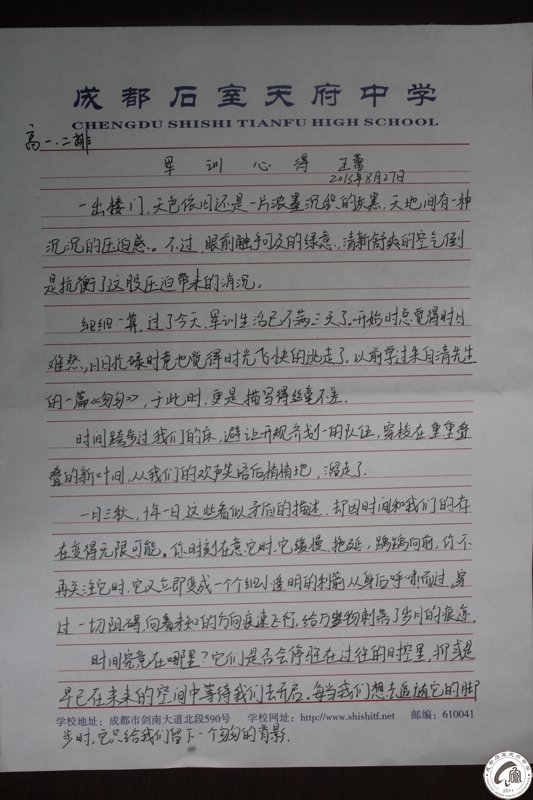 成都石室天府中学
CHENGDU SHISHI TIANFU HIGH SCHOOL
高一.二排
军训心得 王蕾
2015年8月27日
一出楼门,天色依旧还是一片浓墨沉淀的灰黑,天地间有一种
沉沉的压迫感。不过,眼前触手可及的绿意,清新舒爽的空气倒
是抗衡了这股压迫带来的消沉。
细细一算,过了今天,军训生活已不满三天了。开始时总觉得时日
难熬,日日忙碌时竟也觉得时光飞快的逃走了。以前学过朱自清先生
的一篇《匆匆》,于此时,更是描写得丝毫不差。
时间踏步过我们的床,避让开规齐划一的队伍,穿梭在重重叠
叠的新叶间,从我们的欢声笑语后悄悄地,溜走了。
一日三秋,十年一日,这些看似矛盾的描述,却因时间和我们的存
在变得无限可能。你时刻在意它时,它缓慢,拖延,踽踽向前,你不
再关注它时,它又立即变成一个个细小透明的利箭从身后呼啸而过,穿
过一切阻碍,向着未知的方向疾速飞行,给万物刺落了岁月的痕迹。
时间究竟在哪里?它们是否会停驻在过往的时空里,抑或是
早已在未来的空间中等待我们去开启。每当我们想去追随它的脚
步时,它只给我们留下一个匆匆的背影.
学校地址:成都市剑南大道北段590号 学校网址:http://www.shishitf.net 邮编:610041